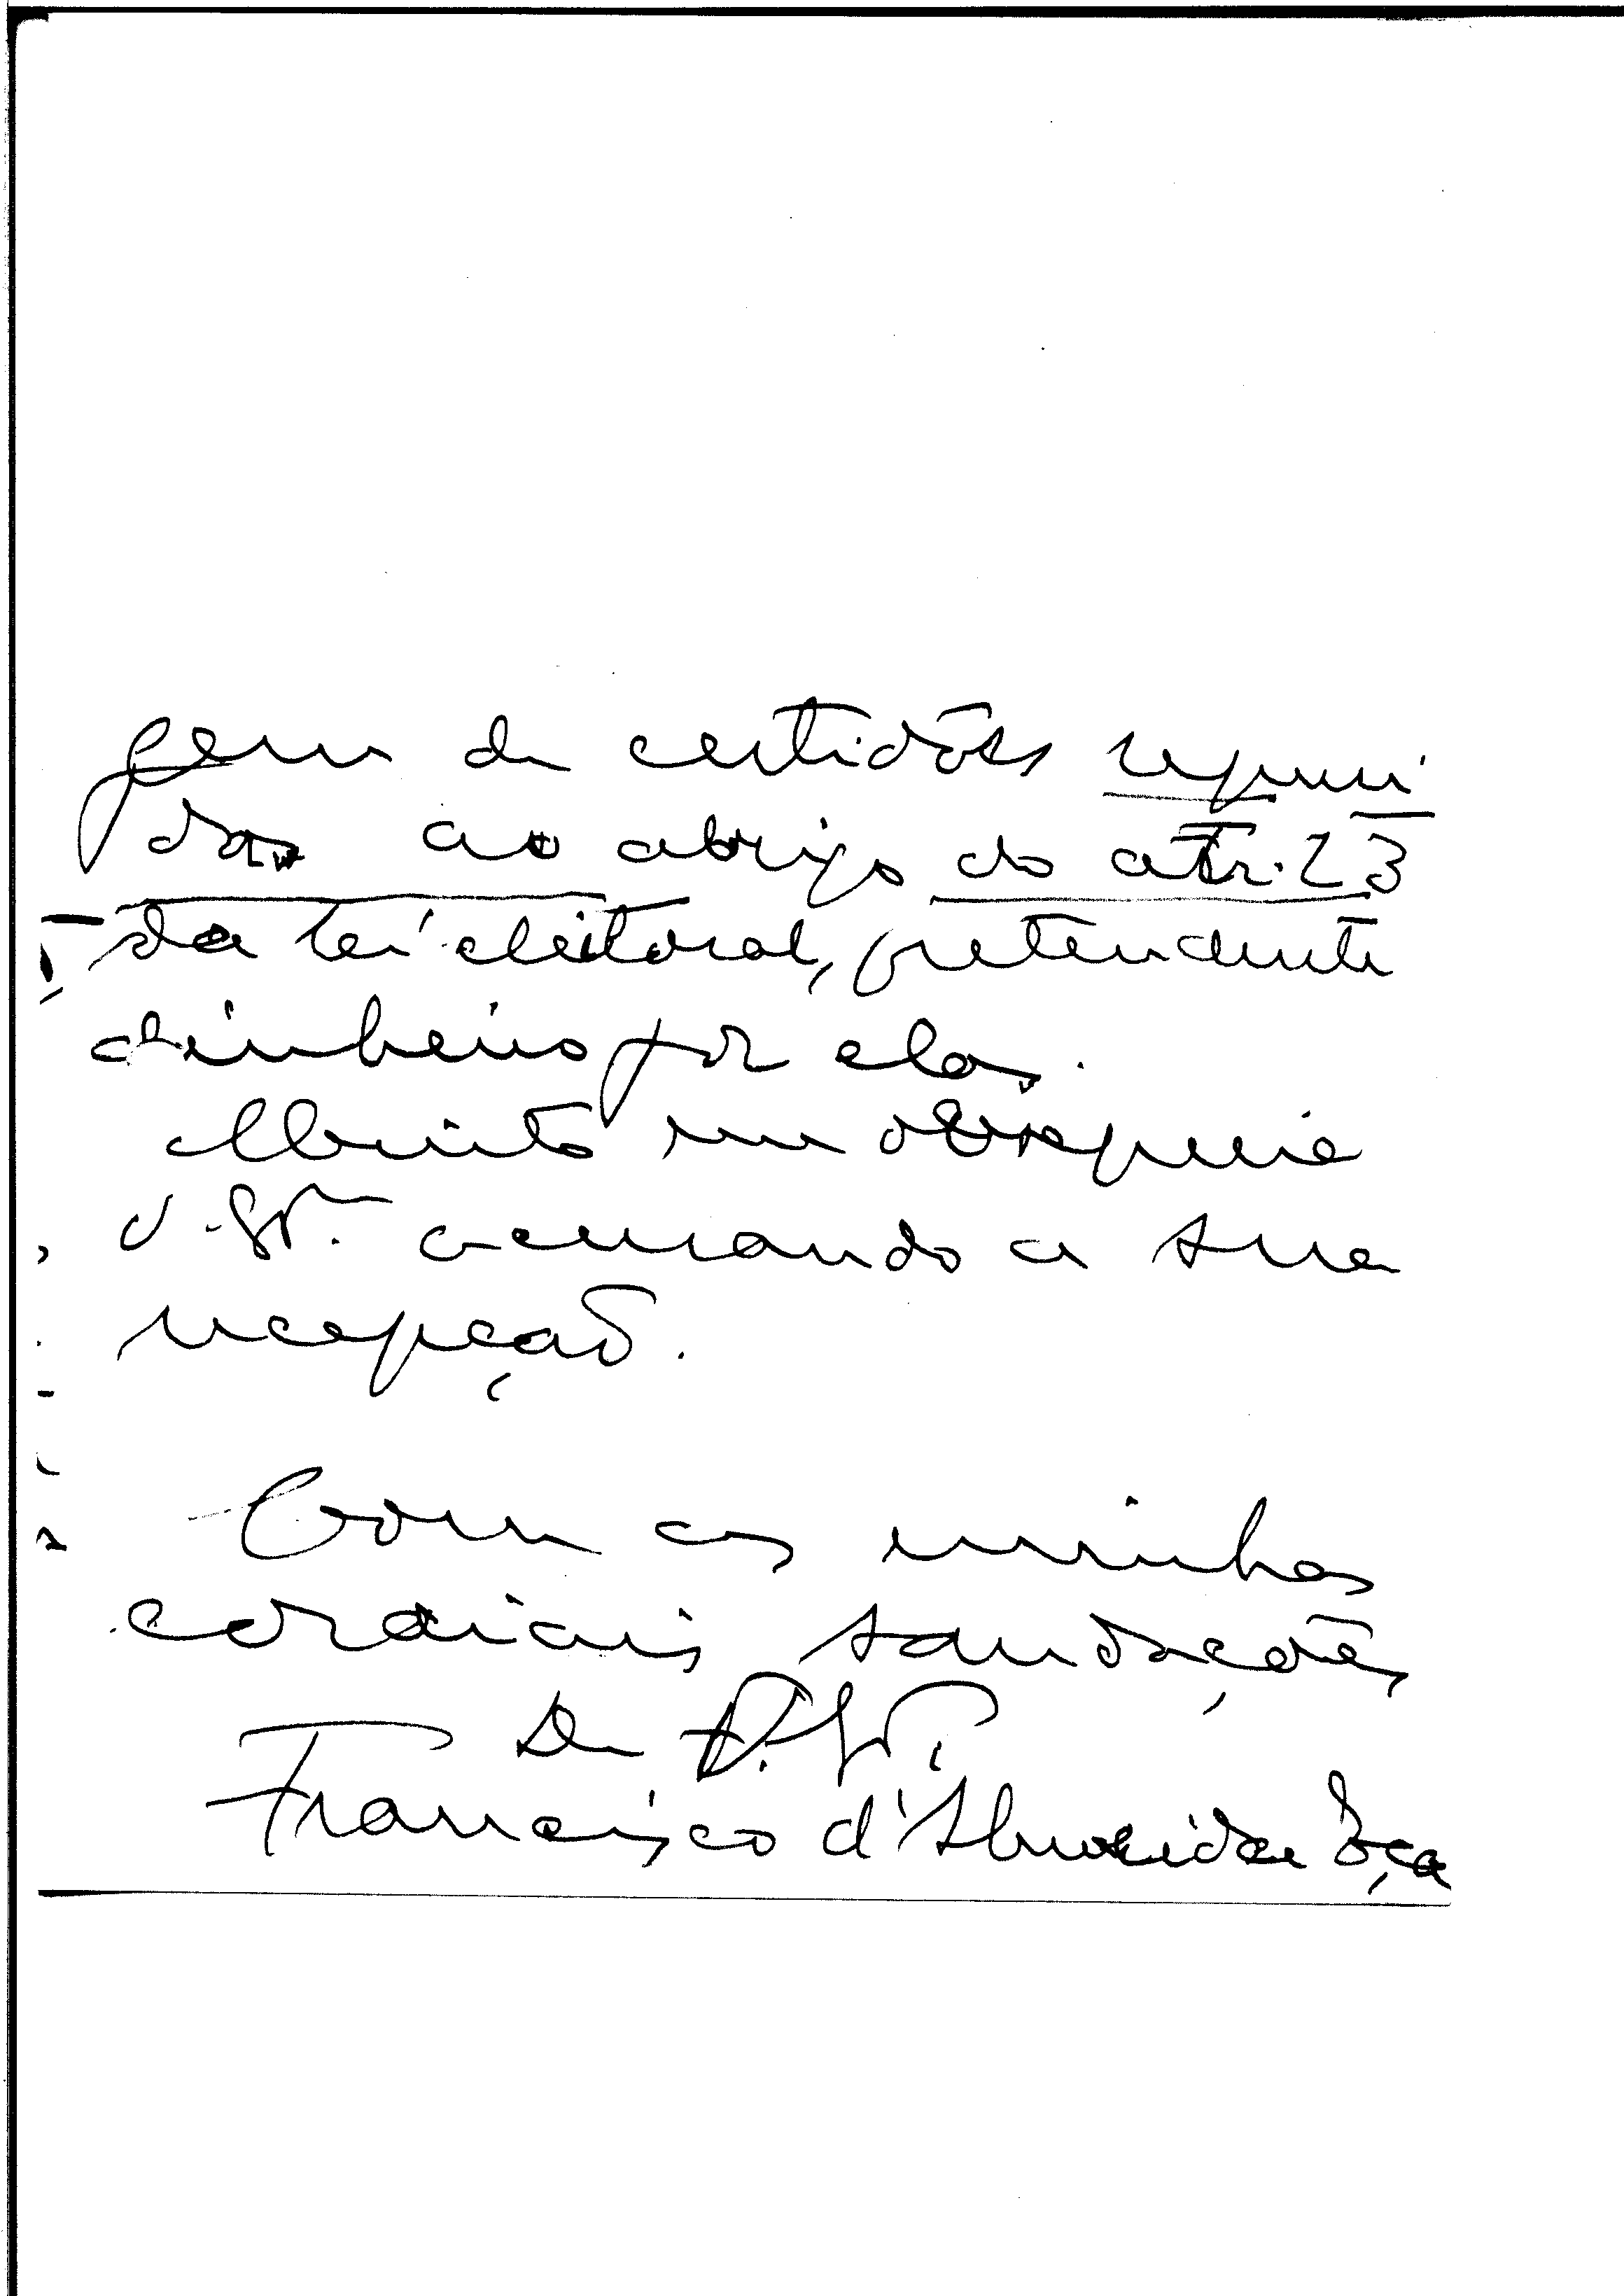 gem de certidões requeri
das ao abrigo do atr. 23
da lei eleitoral, pretendente
dinheiro por elas.
Muito me obsequeia
V. Exª. acusando a sua
recepção.
Com as minhas
cordiais saudações
De V. Exª.
Francisco d'Almeida Eça